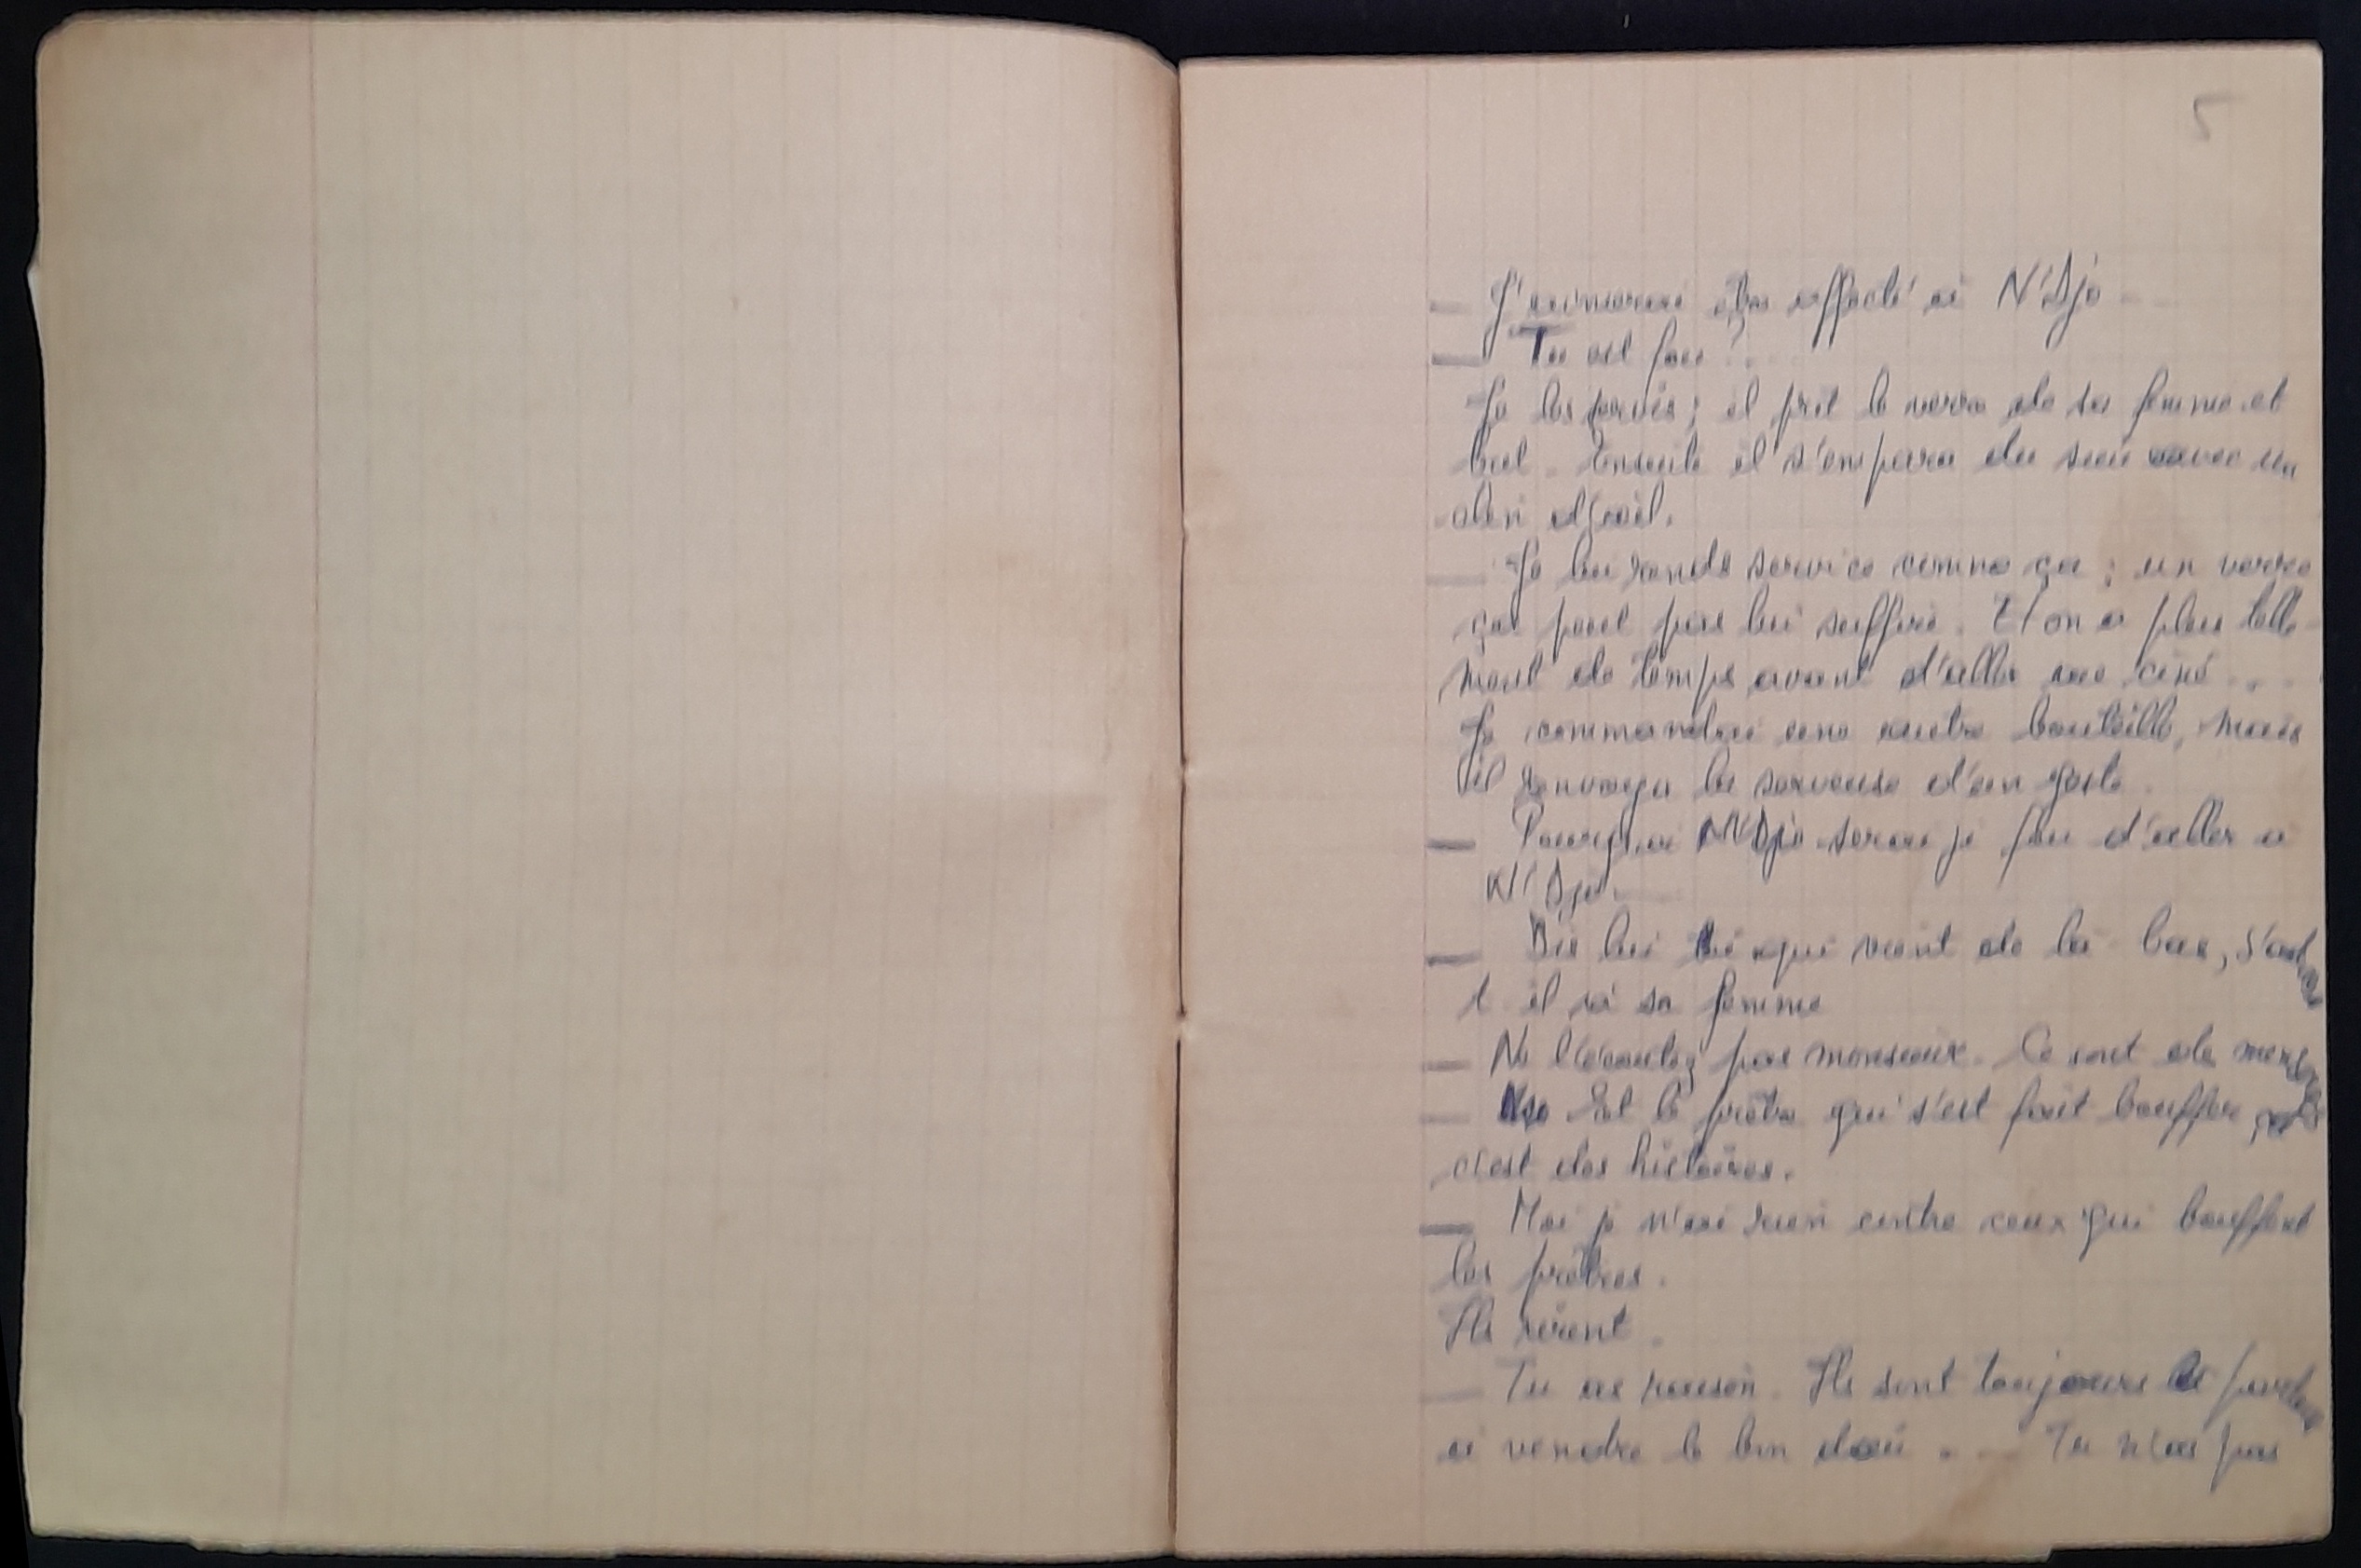 5
— J'aimerai être affecté à N'Djo
— Tu est fou ? ..
Je les servis ; il prit le verre de sa femme et
but. Ensuite il s'empara du sien avec un
clin d'œil.
— Je lui rends service comme ça ; un verre
ça peut pas lui suffire. Et on a plus telle-
ment de temps avant d'aller au ciné ...
Je commandai une autre bouteille, mais
il renvoya la serveuse d'un geste.
— Pourquoi N'Djo serai je fou d'aller à
N'Djo.
— Dis lui toi qui vient de là bas, s'ad
t il à sa femme
— Ne l'écoutez pas monsieur. Ce sont de
— Et le prêtre qui s'est fait bouffer,
c'est des histoires.
— Moi je n'ai rien contre ceux qui bouffent
les prêtres.
Ils rirent.
— Tu as raison. Ils sont toujours
à vendre le bon dieu ... Tu n'as pas